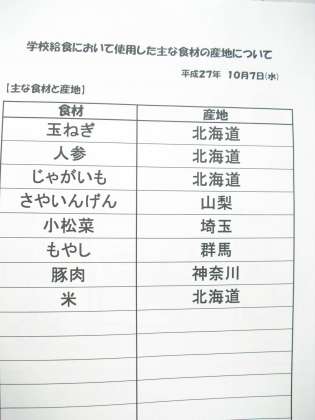 学校給食において使用した主な食材の産地について
平成27年 10月7日(水)
【主な食材と産地】
食材 産地
玉ねぎ 北海道
人参 北海道
じゃがいも 北海道
さやいんげん 山梨
小松菜 埼玉
もやし 群馬
豚肉 神奈川
米 北海道